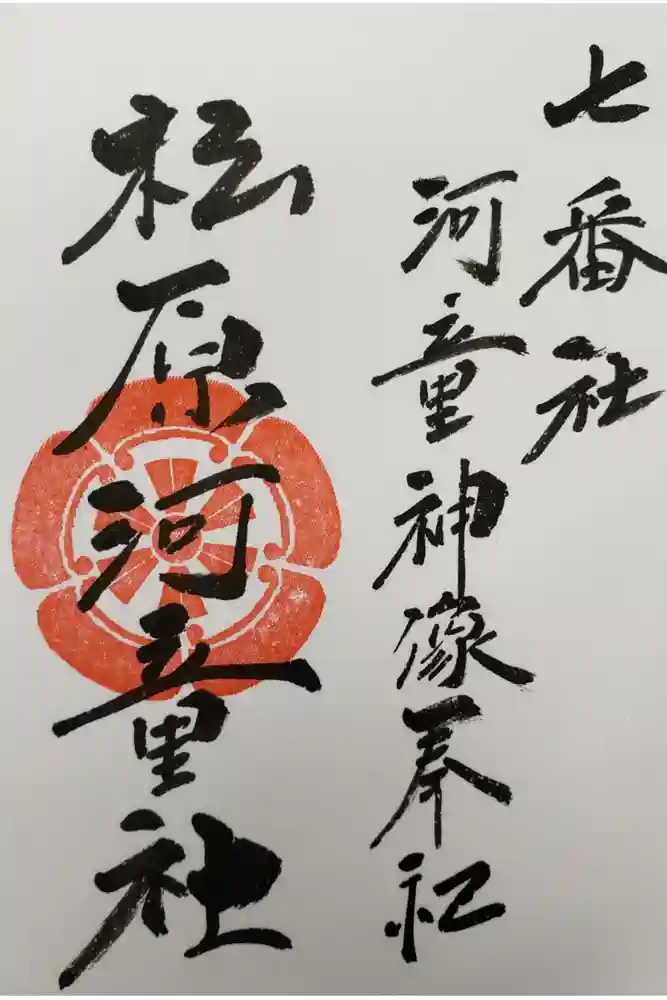 七番社
河童神像奉祀
松原河童社